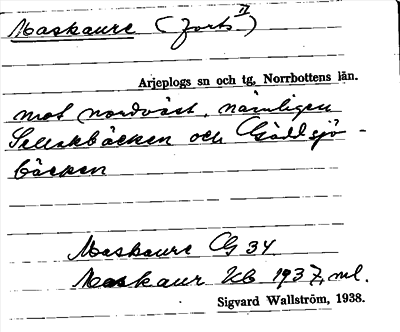 Maskaure (forts II)
Arjeplogs sn och tg, Norrbottens län.
mot nordväst, nämligen
bäcken och Gäddsjö-
bäcken
Maskaure GS 34
Maskaur Kb 1937, ml.
Sigvard Wallström, 1938.